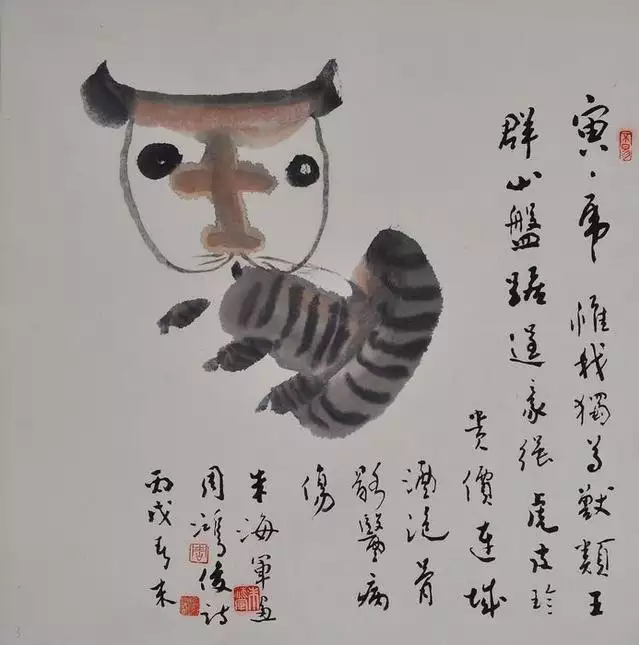 寅、虎 惟我獨尊獸類王
群山盤踞逞豪強 虎皮珍
貴價連城
酒泡骨
骼醫病
傷
朱海軍畫
周鴻俊詩
丙戌春末
3